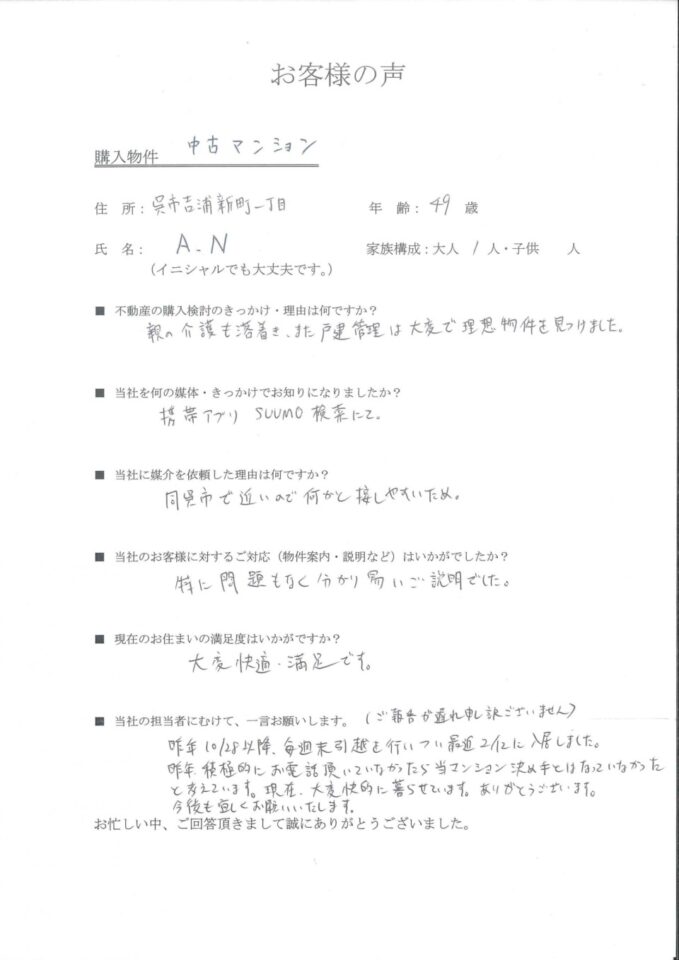 お客様の声
購入物件 中古マンション
住 所：呉市吉浦新町一丁目 年 齢：49 歳
氏 名： A.N 家族構成：大人 1 人・子供 人
（イニシャルでも大丈夫です。）
■ 不動産の購入検討のきっかけ・理由は何ですか？
親の介護も落着き、また戸建管理は大変で理想物件を見つけました。
■ 当社を何の媒体・きっかけでお知りになりましたか？
携帯アプリ SUUMO検索にて。
■ 当社に媒介を依頼した理由は何ですか？
同呉市で近いので何かと接しやすいため。
■ 当社のお客様に対するご対応（物件案内・説明など）はいかがでしたか？
特に問題もなく分かり易いご説明でした。
■ 現在のお住まいの満足度はいかがですか？
大変快適・満足です。
■ 当社の担当者にむけて、一言お願いします。（ご報告が遅れ申し訳ございません）
昨年10/28以降、毎週末引越を行いつい最近2/12に入居しました。
昨年積極的にお電話頂いていなかったら当マンション決め手とはなっていなかった
と考えています。現在、大変快的に暮らせています。ありがとうございます。
今後も宜しくお願いいたします。
お忙しい中、ご回答頂きまして誠にありがとうございました。